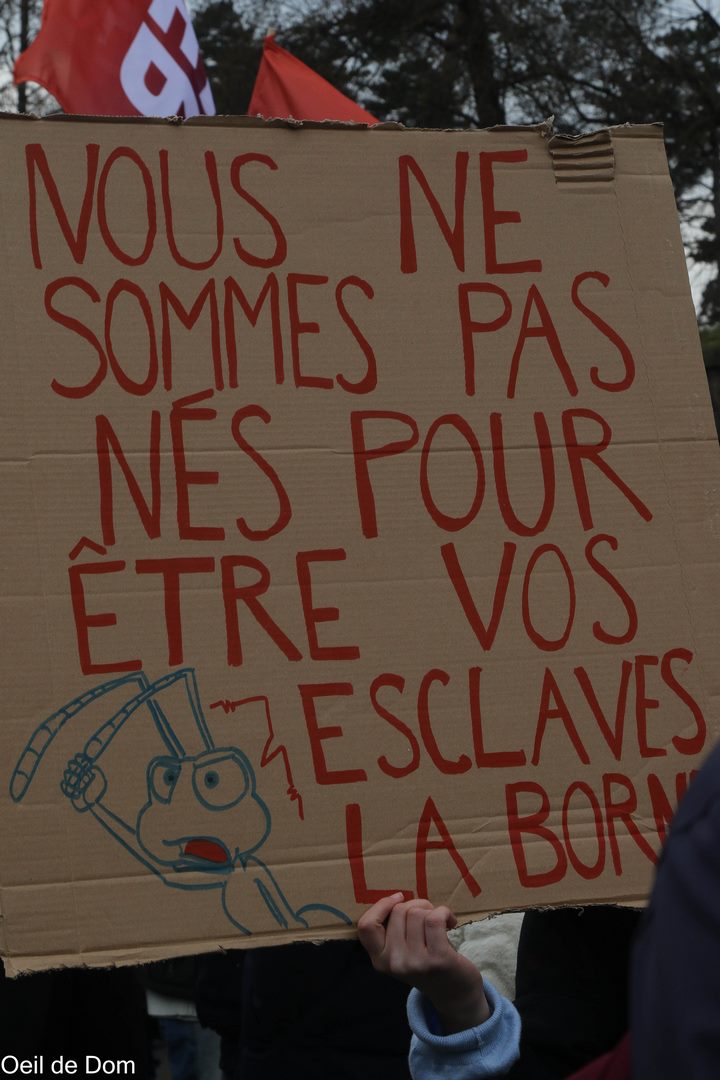 NOUS NE
SOMMES PAS
NÉS POUR
ÊTRE VOS
ESCLAVES
LA
Oeil de Dom